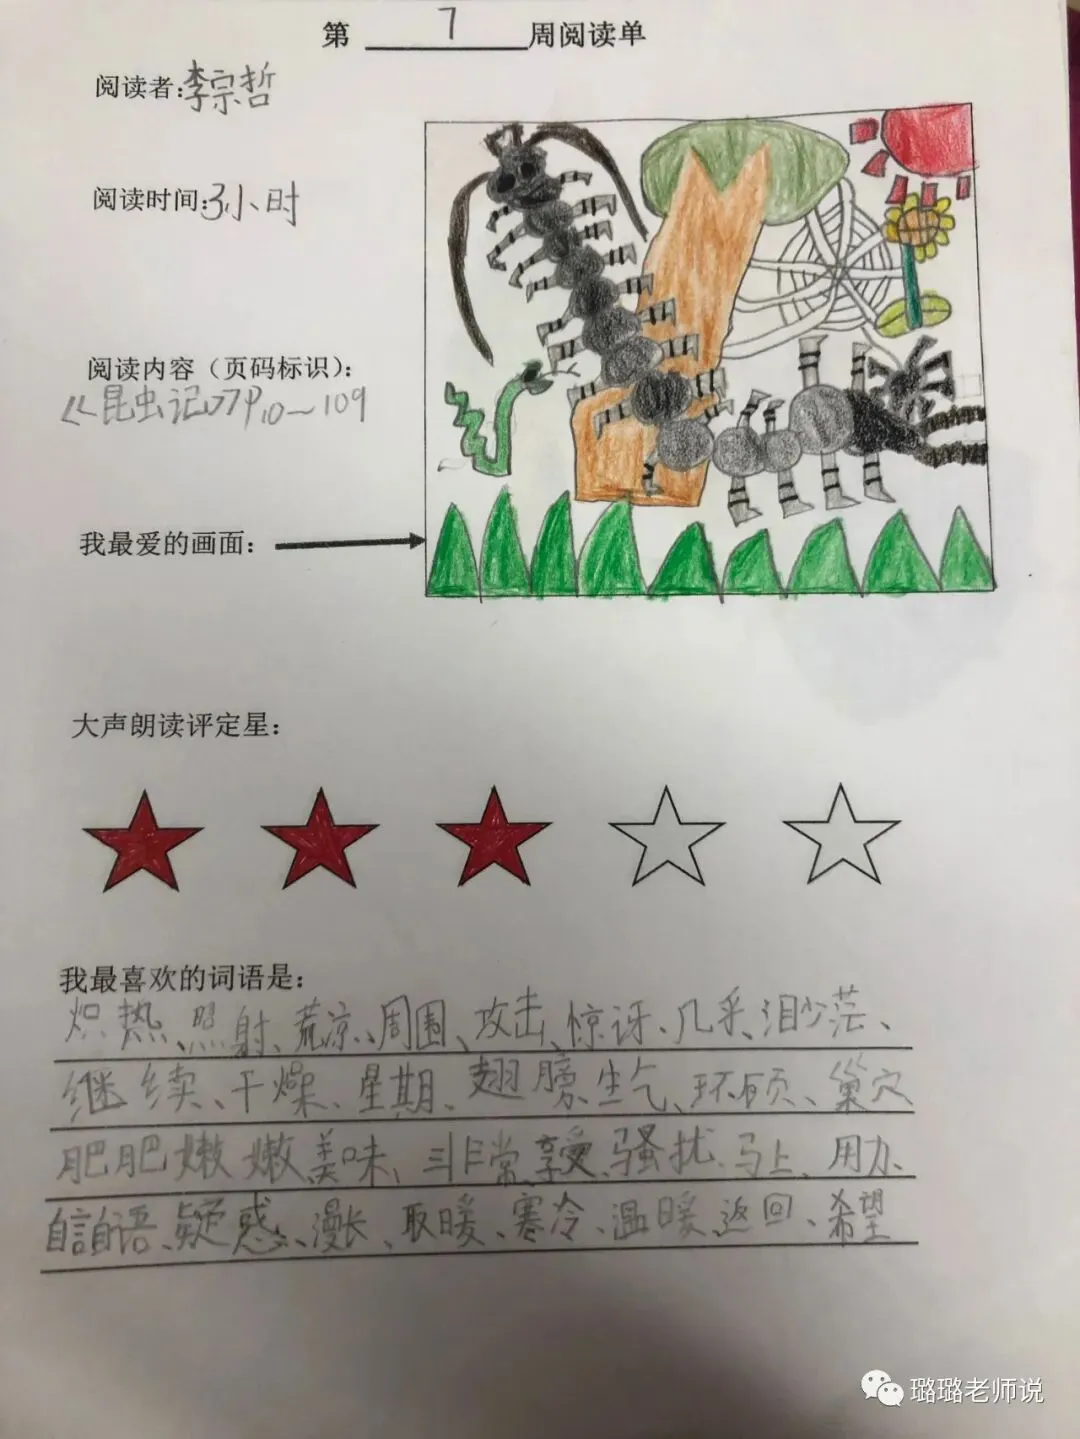 第 7 周阅读单
阅读者:李宗哲
阅读时间:3小时
阅读内容（页码标识）:
《昆虫记》7P10～109
我最爱的画面:
大声朗读评定星:
我最喜欢的词语是:
炽热、照射、荒凉、周围、攻击、惊讶、几乎、
继续、干燥、星期、翅膀、生气、环顾、巢穴
肥肥嫩嫩、美味、非常、享受、骚扰、马上、用力、
自言自语、疑惑、漫长、取暖、寒冷、温暖、返回、希望
璐璐老师说